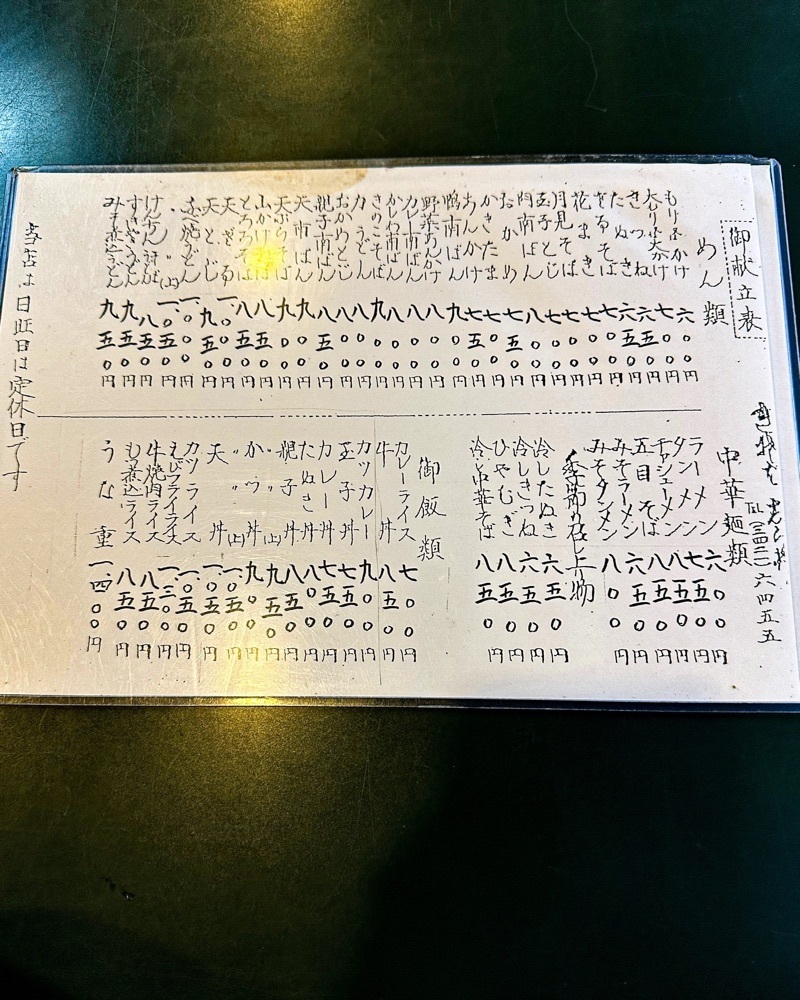 御献立表
めん類
もり・かけ 六〇〇円
大もり・大かけ 七〇〇円
きつね 六五〇円
たぬき 六五〇円
ざるそば 七〇〇円
花まき 七〇〇円
月見そば 七〇〇円
玉子とじ 七〇〇円
肉南ばん 八〇〇円
おかめ 七五〇円
かきたま 七〇〇円
あんかけ 七五〇円
鴨南ばん 九〇〇円
野菜あんかけ 八〇〇円
カレー南ばん 八〇〇円
かしわ南ばん 八〇〇円
きのこそば 九〇〇円
力うどん 八〇〇円
おかめとじ 八〇〇円
親子南ばん 八五〇円
天南ばん 九〇〇円
天ぷらそば 九〇〇円
山かけそば 八五〇円
とろろそば 八五〇円
天ざる 一、〇〇〇円
天とじ 九五〇円
鍋焼うどん 一、〇〇〇円
〃(上) 一、〇五〇円
けんちんそば 八五〇円
すきやきうどん 九五〇円
みそ煮込うどん 九五〇円
TEL(三四二一)六四五五
中華麺類
ラーメン 六〇〇円
タンメン 七五〇円
チャシューメン 八五〇円
五目そば 八五〇円
みそラーメン 六五〇円
みそタンメン 八〇〇円
季節の召し上り物
冷したぬき 六五〇円
冷しきつね 六五〇円
ひやむぎ 八〇〇円
冷し中華そば 八五〇円
御飯類
カレーライス 七〇〇円
牛丼 八五〇円
カツカレー 九〇〇円
玉子丼 七五〇円
カレー丼 七五〇円
たぬき丼 八〇〇円
親子丼 八五〇円
〃(上) 九五〇円
かつ丼 九〇〇円
〃(上) 一、〇五〇円
天丼 一、〇五〇円
カツライス 一、〇五〇円
えびフライライス 一、三〇〇円
牛焼肉ライス 八五〇円
もつ煮込ライス 八五〇円
うな重 一、四〇〇円
当店は日曜日は定休日です